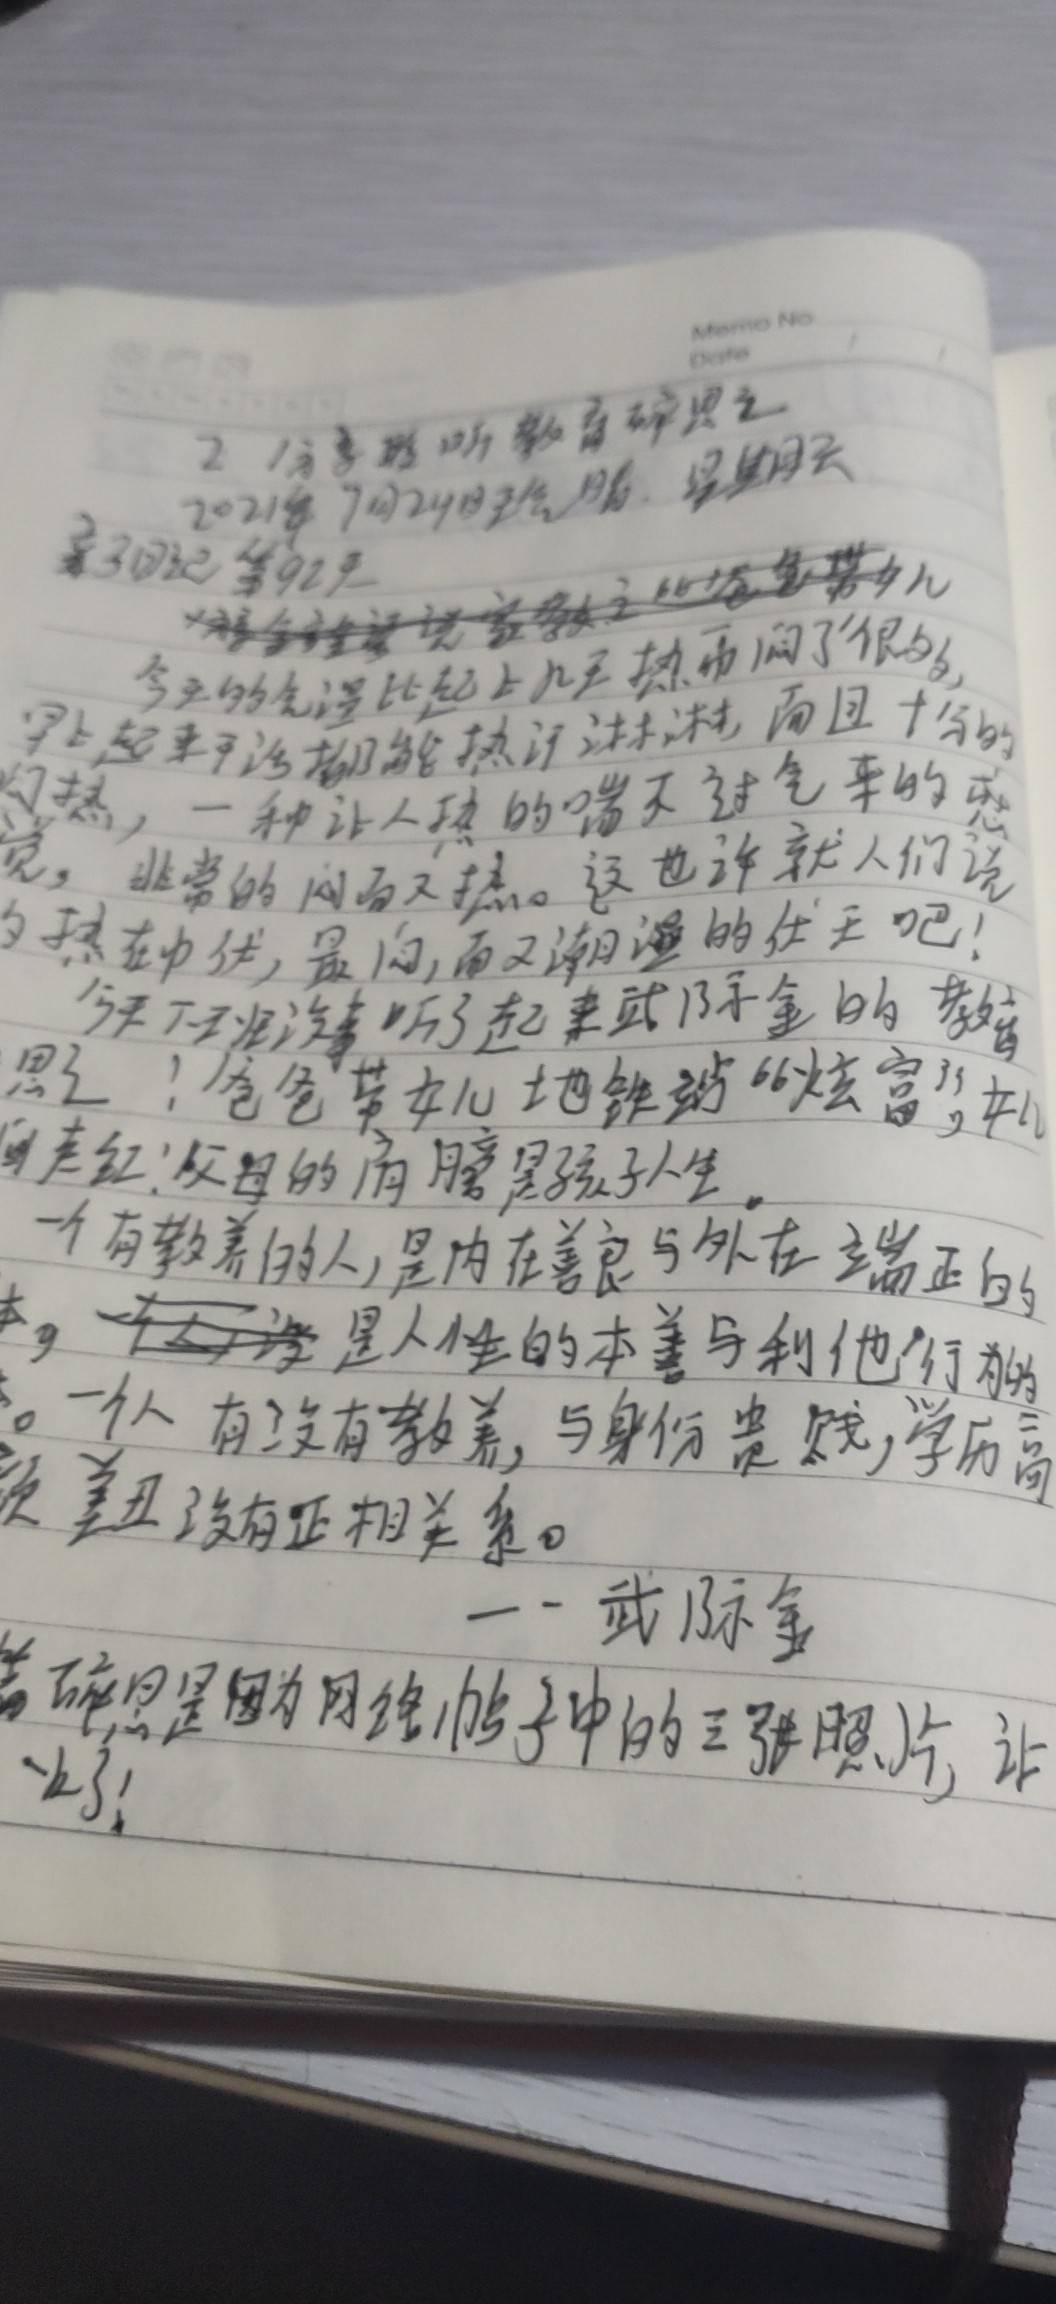 Memo No
Date
2 分享聆听教育碎思之
2021年7月24日 星期天
亲子日记 第92天
女儿
今天的气温比起上几天热而闷了很多,
早上起来干活都能热汗淋淋,而且十分的
闷热,一种让人热的喘不过气来的感
觉,非常的闷而又热。这也许就人们说
的热在中伏,最闷,而又潮湿的伏天吧!
今天下班没事听了起来武际金的教育
思之!爸爸带女儿地铁站“炫富”,女儿
老红!父母的肩膀是孩子人生。
一个有教养的人,是内在善良与外在端正的
本。是人性的本善与利他行为的
。一个人有没有教养,与身份贵贱,学历高
美丑没有正相关系。
--武际金
碎思是因为网络帖子中的三张照片,让
了!